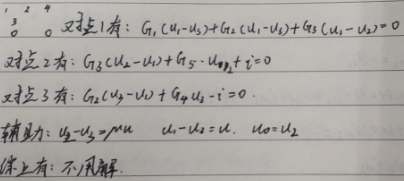 1 2 4
3
0 0 对点1有: G₁(u₁-u₅)+G₂(u₁-u₃)+G₃(u₁-u₂)=0
对点2有: G₃(u₂-u₁)+G₅·u₂+i=0
对点3有: G₂(u₃-u₁)+G₄u₃-i=0.
辅助: u₂-u₃=μu u₁-u₃=u. u₀=u₂
综上有: 不用解.